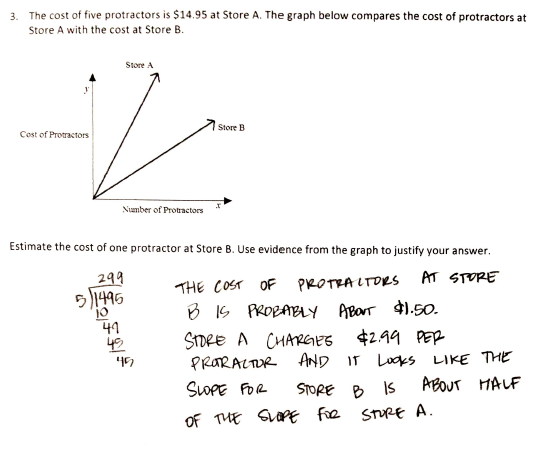 3. The cost of five protractors is $14.95 at Store A. The graph below compares the cost of protractors at
Store A with the cost at Store B.
Store A
y
Store B
Cost of Protractors
x
Number of Protractors
Estimate the cost of one protractor at Store B. Use evidence from the graph to justify your answer.
299
5)1495
10
49
45
45
THE COST OF PROTRACTORS AT STORE
B IS PROBABLY ABOUT $1.50.
STORE A CHARGES $2.99 PER
PROTRACTOR AND IT LOOKS LIKE THE
SLOPE FOR STORE B IS ABOUT HALF
OF THE SLOPE FOR STORE A.